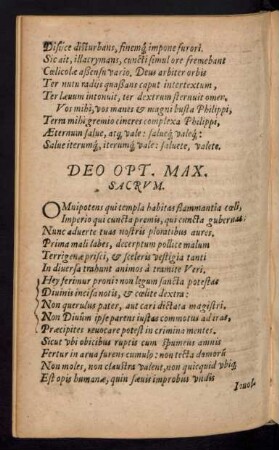 Disijce disturbans, finemq́; impone furori.
Sic ait, illacrymans, cuncti simul ore fremebant
Cœlicolæ assensu vario. Deus arbiter orbis
Ter nutu radijs quassans caput intertextum,
Ter læuum intonuit, ter dextrum sternuit omen.
Vos mihi, vos manes & magni busta Philippi,
Terra mihi gremio cineres complexa Philippi,
Æternùm salue, atq́; vale: salueq́; valeq́;:
Salue iterumq́;, iterumq́; vale: saluete, valete.
DEO OPT. MAX.
SACRVM.
OMnipotens qui templa habitas flammantia cœli,
Imperio qui cuncta premis, qui cuncta gubernas:
Nunc aduerte tuas nostris ploratibus aures,
Prima mali labes, decerptum pollice malum
Terrigenæ prisci, & sceleris vestigia tanti
In diuersa trahunt animos à tramite Veri.
Hey ferimur proni: non legum sancta potestas
Diuinis incisa notis, & cœlite dextra:
Non querulus pater, aut cari dictata magistri,
Non Diuûm ipse parens iustas commotus ad iras,
Præcipites reuocare potest in crimina mentes.
Sicut vbi obicibus ruptis cum spumeus amnis
Fertur in arua furens cumulo: non tecta domorũ
Non moles, non claustra valent, non quicquid vbiq́;
Est opis humanæ, quin sæuis improbus vndis
Iuuol-